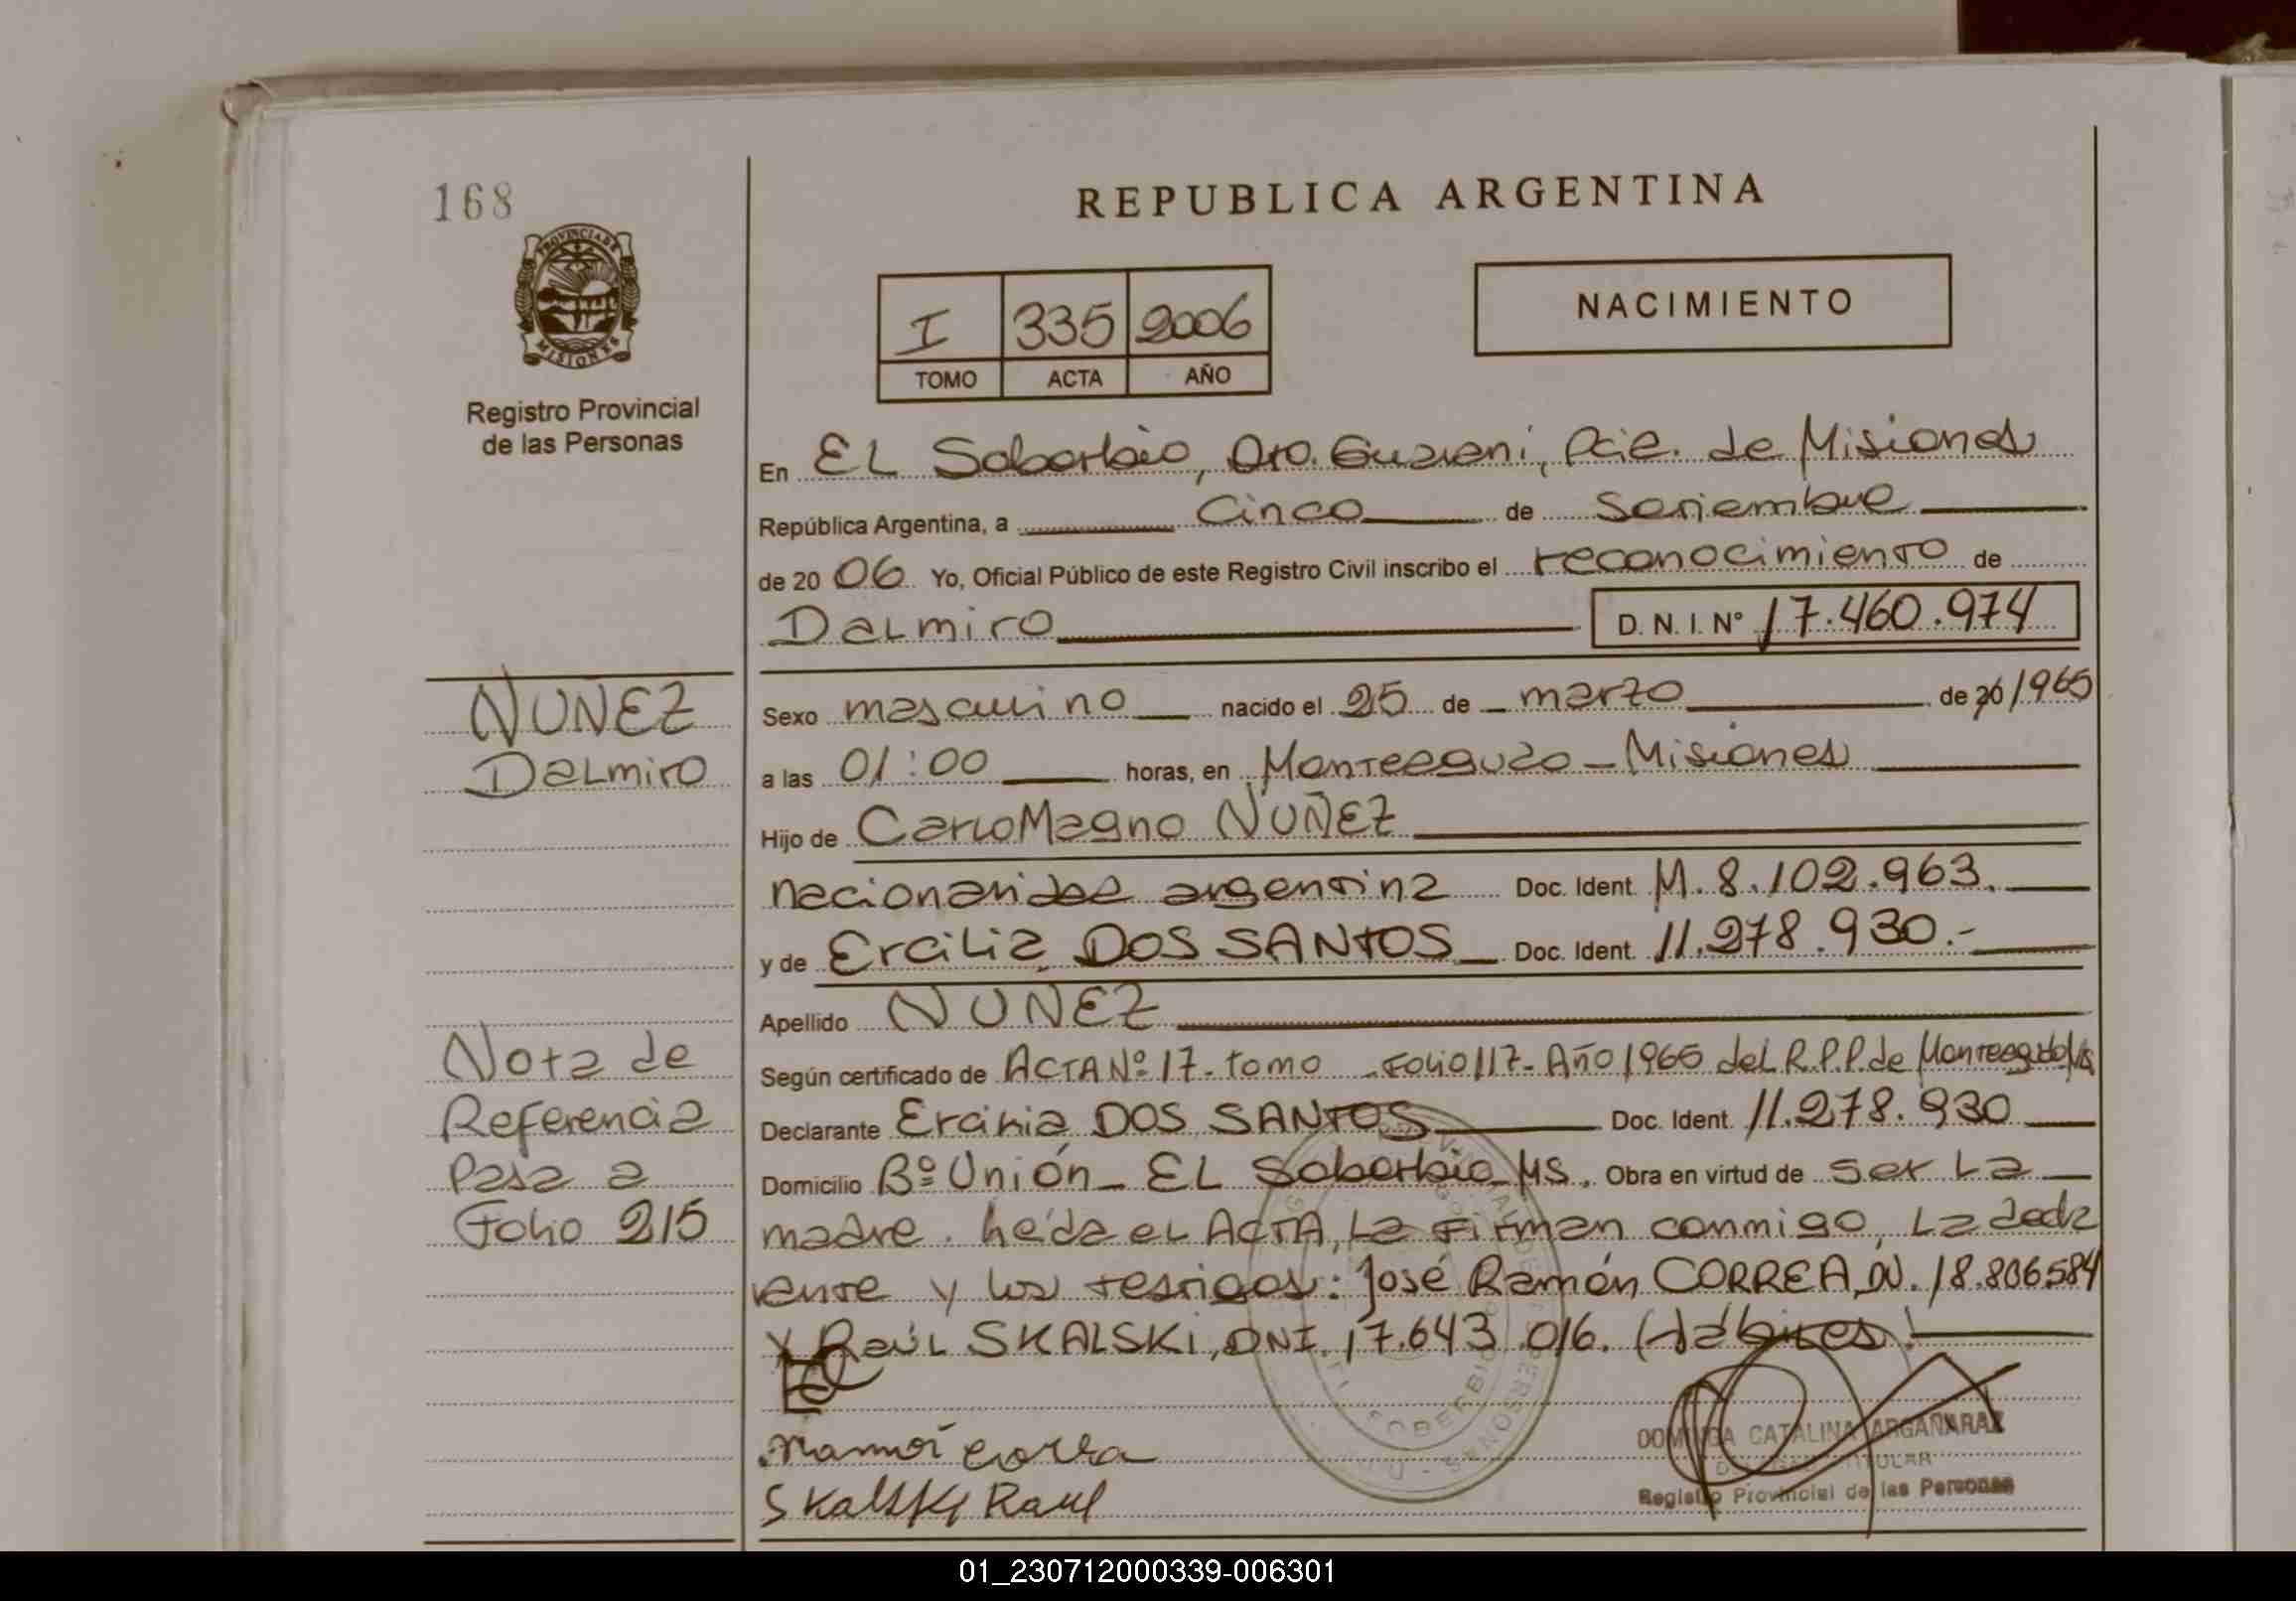 168
PROVINCIA DE
MISIONES
Registro Provincial
de las Personas
REPUBLICA ARGENTINA
I 335 2006
TOMO ACTA AÑO
NACIMIENTO
En EL Soberbio, Dto. Guarani, Pcia. de Misiones
República Argentina, a Cinco de Setiembre
de 20 06 Yo, Oficial Público de este Registro Civil inscribo el reconocimiento de
Dalmiro D. N. I. Nº 17.460.974
NUÑEZ
Dalmiro
Sexo masculino nacido el 25 de marzo de 20/1965
a las 01:00 horas, en Monteagudo - Misiones
Hijo de CarloMagno NUÑEZ
nacionalidad argentina Doc. Ident. M. 8.102.963.
y de Ercilia DOS SANTOS Doc. Ident. 11.278.930.-
Apellido NUÑEZ
Nota de
Referencia
Pasa a
Folio 215
Según certificado de ACTA Nº 17 - tomo - Folio 117 - Año 1965 del R.P.P. de Monteagudo
Declarante Ercilia DOS SANTOS Doc. Ident. 11.278.930
Domicilio Bº Unión - EL Soberbio - MS. Obra en virtud de ser La
madre. Leída el ACTA, La Firman conmigo, La decla
rante y los testigos: José Ramón CORREA, 18.806.584
y Raúl SKALSKI, DNI. 17.643.016. (Hábiles)
Ramón Correa
Skalski Raul
SOBERBIO
DOMINGA CATALINA ARGAÑARAZ
TITULAR
Registro Provincial de las Personas
01_230712000339-006301